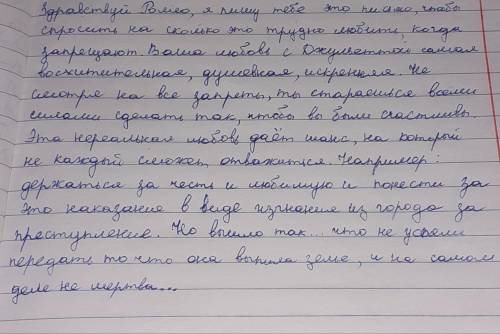 Здравствуй Ромео, я пишу тебе это письмо, чтобы
спросить на сколько это трудно любить, когда
запрещают. Ваша любовь с Джульеттой самая
восхитительная, душевная, искренняя. Не
смотря на все запреты, ты стараешься всеми
силами сделать так, чтобы вы были счастливы.
Эта нереальная любовь даёт шанс, на который
не каждый сможет отважиться. Например:
держаться за честь и любимую и понести за
это наказание в виде изгнания из города за
преступление. Но вышло так... что не успели
передать то что она выпила зелье, и на самом
деле не мертва...